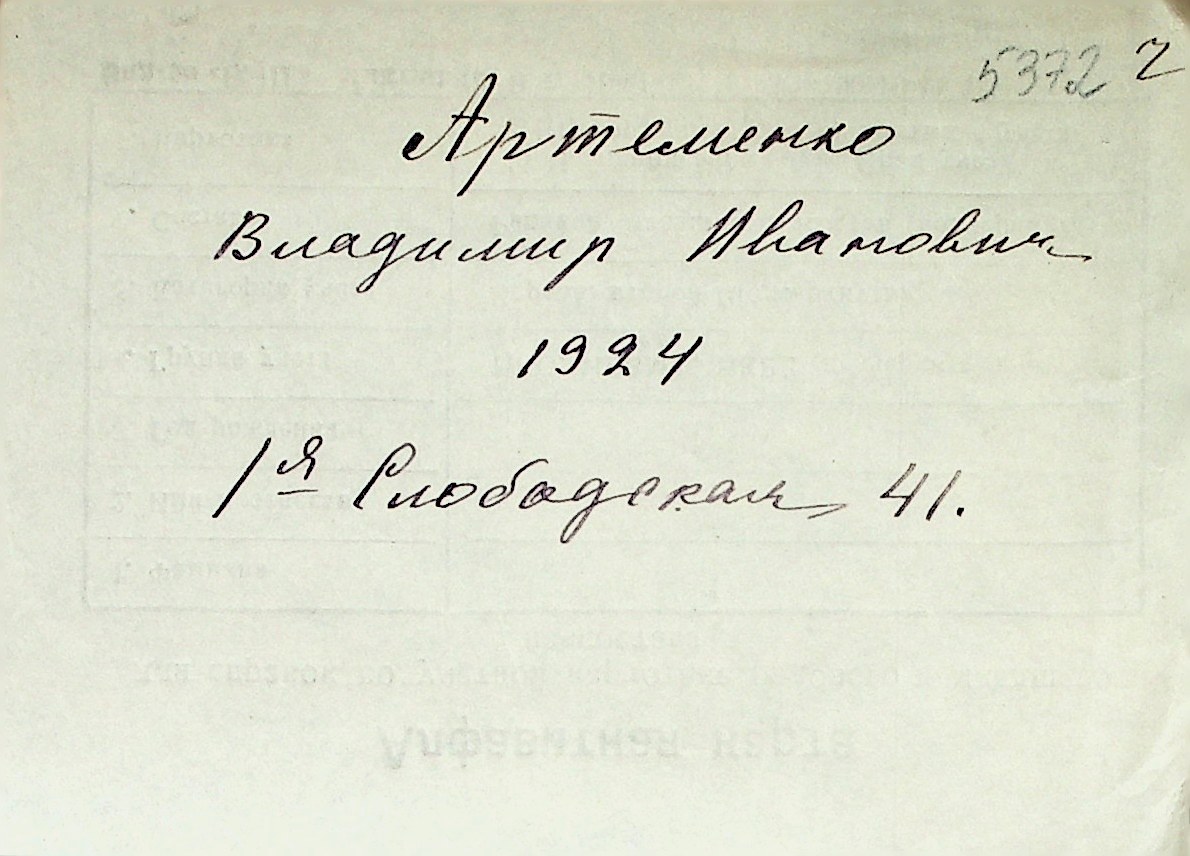 5372 ч
Артеменко
Владимир Иванович
1924
1я Слободская 41.